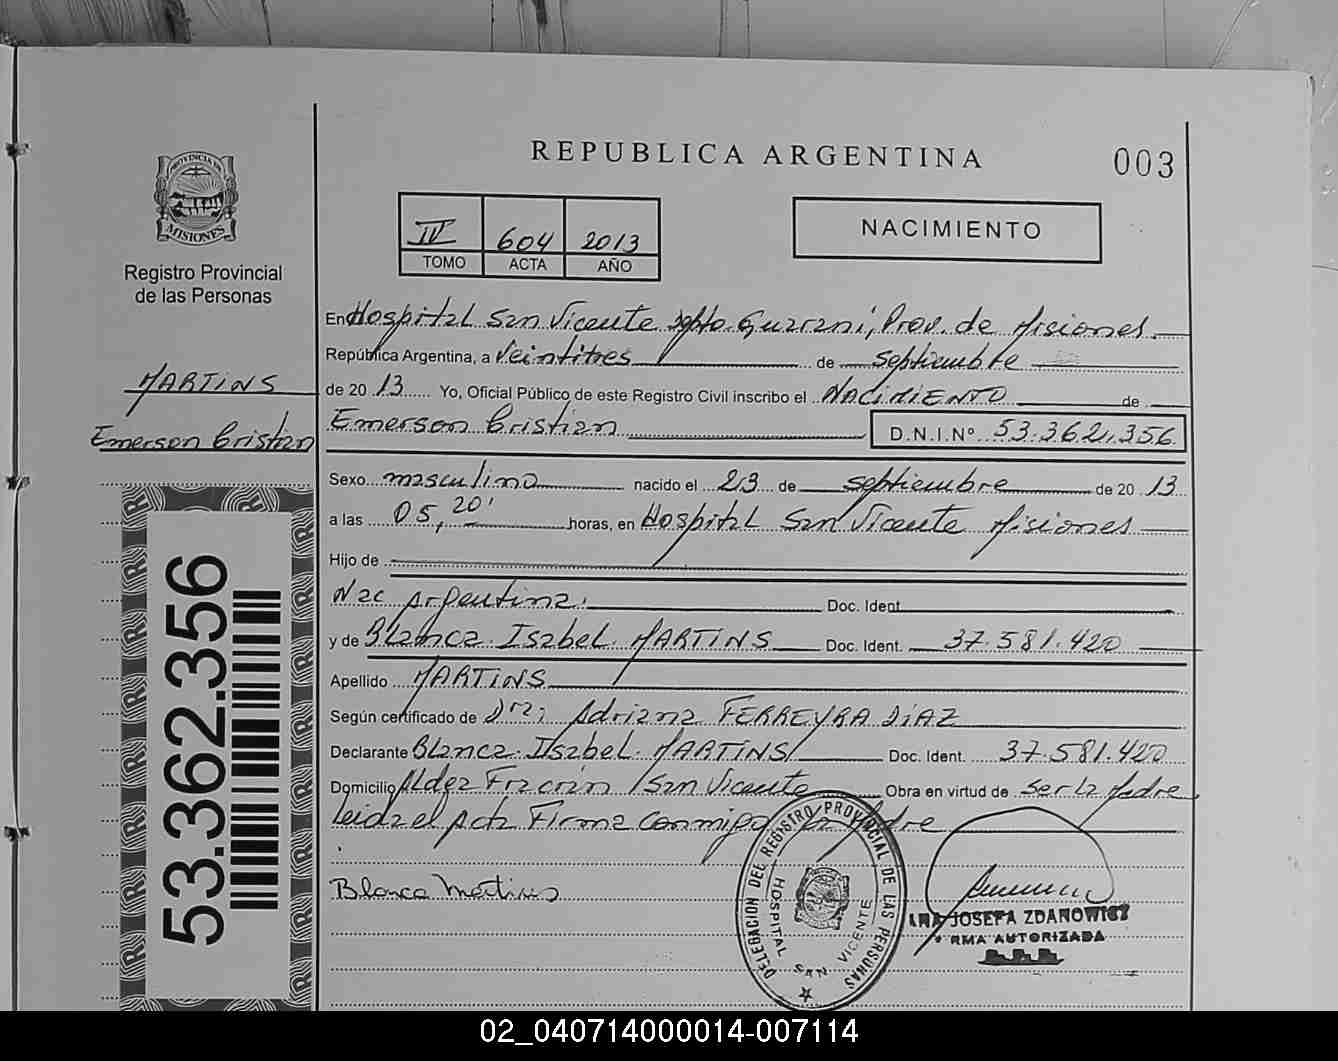 REPUBLICA ARGENTINA
003
PROVINCIA DE
MISIONES
Registro Provincial
de las Personas
IV 604 2013
TOMO ACTA AÑO
NACIMIENTO
En Hospital San Vicente Dpto. Guarani, Prov. de Misiones
República Argentina, a Veintitres de septiembre
de 20 13 Yo, Oficial Público de este Registro Civil inscribo el NACIMIENTO de
Emerson Cristian D.N.I.Nº 53.362.356
MARTINS
Emerson Cristian
Sexo masculino nacido el 23 de septiembre de 20 13
a las 05,20' horas, en Hospital San Vicente Misiones
Hijo de
Nac Argentina. Doc. Ident.
y de Blanca Isabel MARTINS Doc. Ident. 37.581.420
Apellido MARTINS
Según certificado de Dra; Adriana FERREYRA DIAZ
Declarante Blanca Isabel MARTINS Doc. Ident. 37.581.420
Domicilio Aldea Fracrán San Vicente Obra en virtud de ser la Madre
leida el Acta Firma conmigo la Madre
Blanca Martins
53.362.356
DELEGACION DEL REGISTRO PROVINCIAL DE LAS PERSONAS
HOSPITAL SAN VICENTE
JOSEFA ZDANOWICZ
RMA AUTORIZADA
02_040714000014-007114